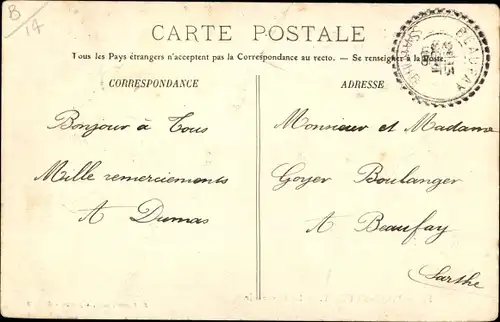 B
14
CARTE POSTALE
Tous les Pays étrangers n'acceptent pas la Correspondance au recto. — Se renseigner à la Poste.
CORRESPONDANCE
ADRESSE
BEAUFAY
SARTHE
Bonjour à Tous
Mille remerciements
A Dumas
Monsieur et Madame
Goyer Boulanger
A Beaufay
Sarthe